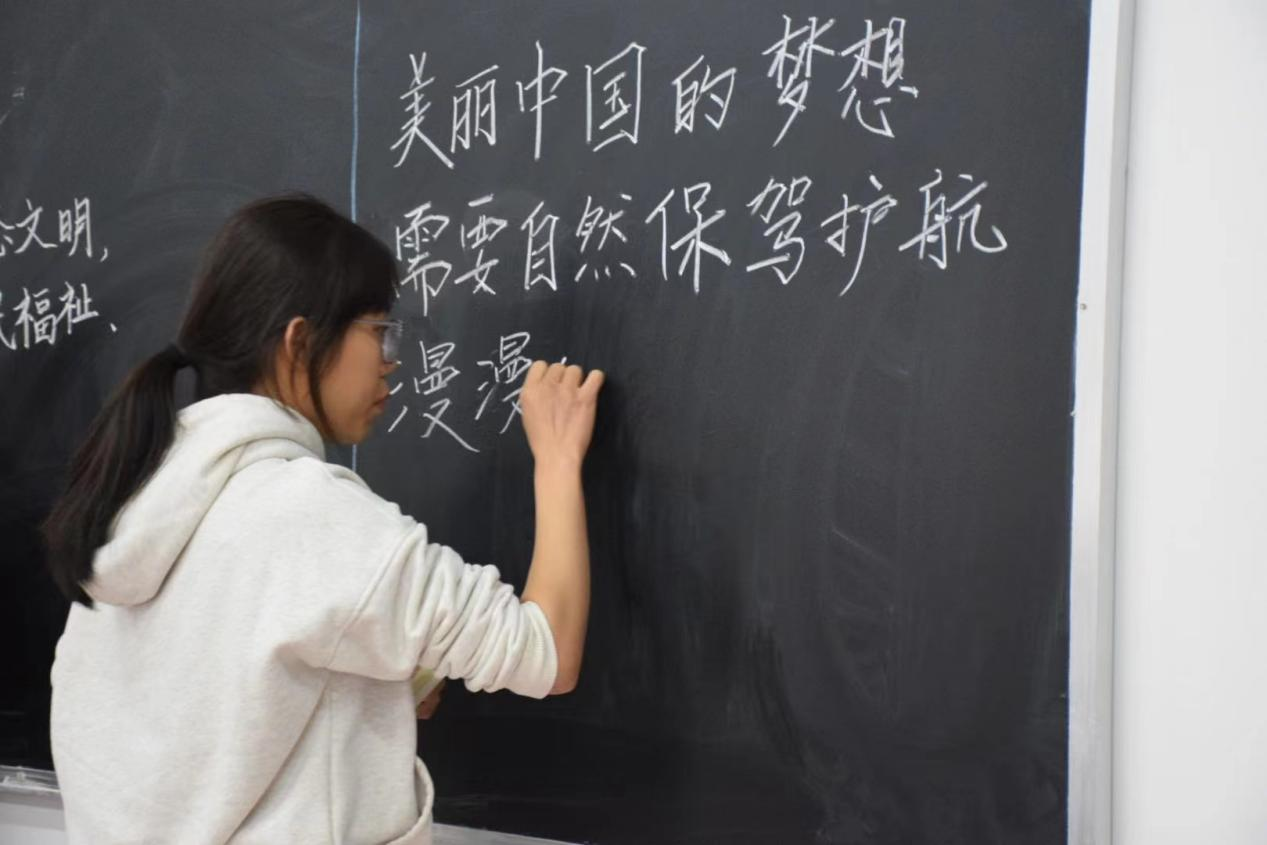 文明,
福祉、
美丽中国的梦想
需要自然保驾护航
漫漫